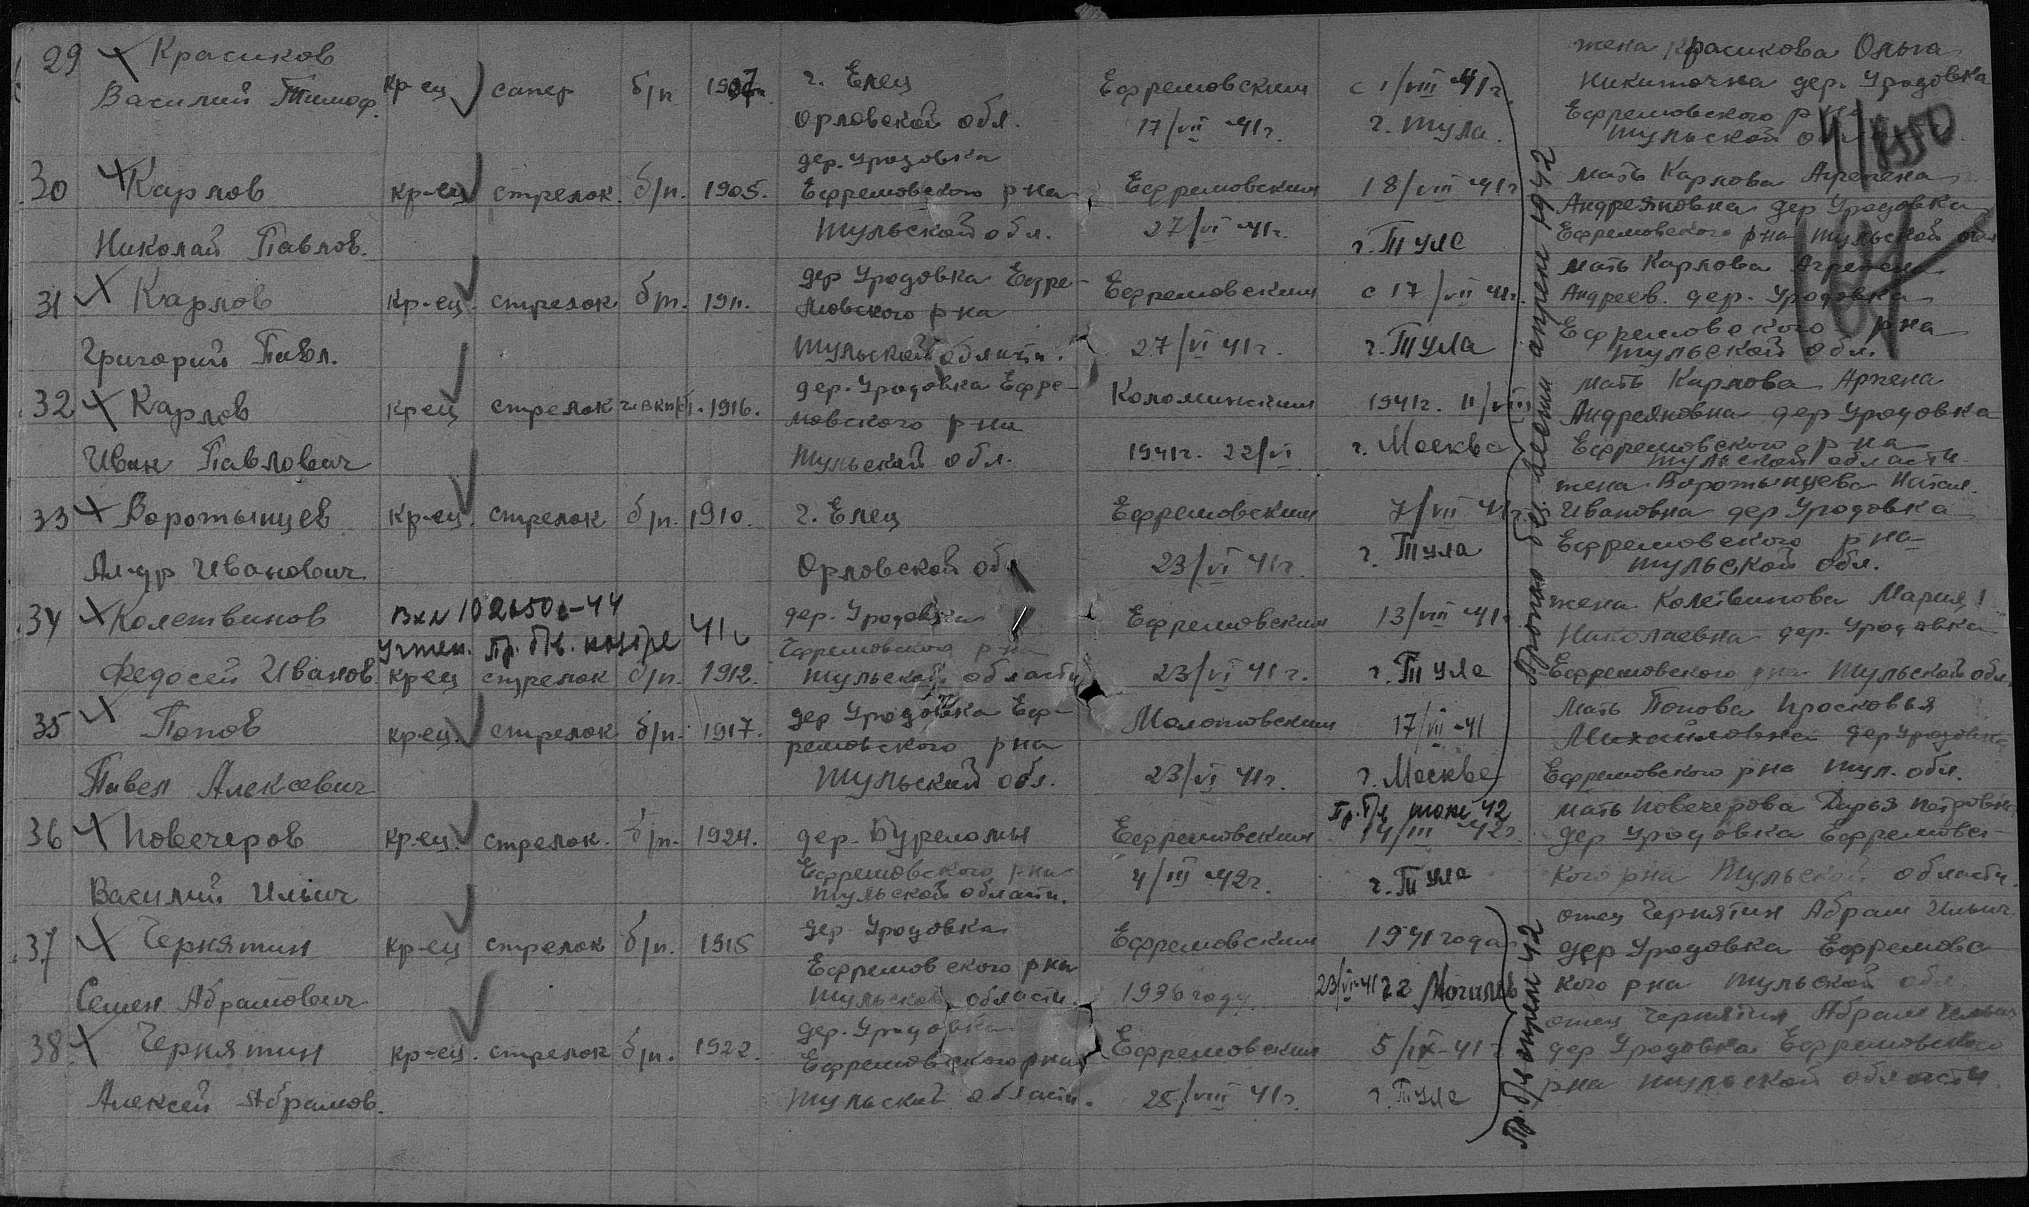 29 Красиков Василий Тимоф. кр-ец сапер б/п 1907 г. Елец Орловской обл. Ефремовским 17/VII 41г. с 1/VIII 41г. г. Тула жена Красикова Ольга Никиточна дер. Уродовка Ефремовского р на Тульской
30 Карлов Николай Павлов. кр-ец стрелок б/п. 1905. дер. Уродовка Ефремовского р на Тульской обл. Ефремовским 27/VI 41г. 18/VIII 41г г. Туле мать Карлова Агрепена Андреяновна дер Уродовка Ефремовского р на Тульской обл
31 Карлов Григорий Павл. кр-ец. стрелок б/п. 1911. дер Уродовка Ефре- мовского р на Тульской области. Ефремовским 27/VI 41г. с 17/VII 41г. г. Тула мать Карлова Агрепен Андреев. дер. Уродовка Ефремовского р на Тульской обл.
32 Карлов Иван Павлович кр ец стрелок чл ВКП(б). 1916. дер. Уродовка Ефре- мовского р на Тульской обл. Коломинским 1941г. 22/VI 1941г. 11/VIII г. Москва мать Карлова Арпена Андреяновна дер Уродовка Ефремовского р на Тульской области
33 Воротынцев Ал-др Иванович кр-ец. стрелок б/п. 1910. г. Елец Орловской обл Ефремовским 23/VI 41г. 7/VII 41г. г. Тула жена Воротынцева Натал. Ивановна дер Уродовка Ефремовского р на Тульской обл.
34 Колетвинов Федосей Иванов Вх № 102650с-44 Учтен. пр. б/в. 41г кр ец стрелок б/п. 1912. дер. Уродовка Ефремовского р на Тульской области Ефремовским 23/VI 41г. 13/VIII 41г г. Туле жена Колетвинова Мария Николаевна дер. Уродовка Ефремовского р на Тульской обл.
35 Попов Павел Алексевич кр-ец. стрелок б/п. 1917. дер Уродовка Еф- ремовского р на Тульской обл. Молотовским 23/VI 41г. 17/VII 41 г. Москве Мать Попова Просковья Михайловна дер Уродовка Ефремовского р на Тул. обл.
Пропал без вести апреле 1942
36 Повечеров Василий Ильич кр-ец. стрелок. б/п. 1924. дер. Буреломы Ефремовского р на Тульской области. Ефремовским 4/III 42г. Пр. б/в 42 14/III 42г. г. Тула мать Повечерова Дарья Петровна дер Уродовка Ефремовс- кого р на Тульской области.
37 Чернятин Семен Абрамович кр-ец стрелок б/п. 1915 дер Уродовка Ефремовского р на Тульской области. Ефремовским 1936 году 1941 года 23/VI-41г г Могилев отец Чернятин Абрам Ильич. дер Уродовка Ефремовс кого р на Тульской обл
38 Чернятин Алексей Абрамов. кр-ец. стрелок б/п. 1922. дер. Уродовка Ефремовского р на Тульской области. Ефремовским 25/VIII 41г. 5/IX-41г г. Туле отец Чернятин Абрам Ильич дер Уродовка Ефремовского р на Тульской области